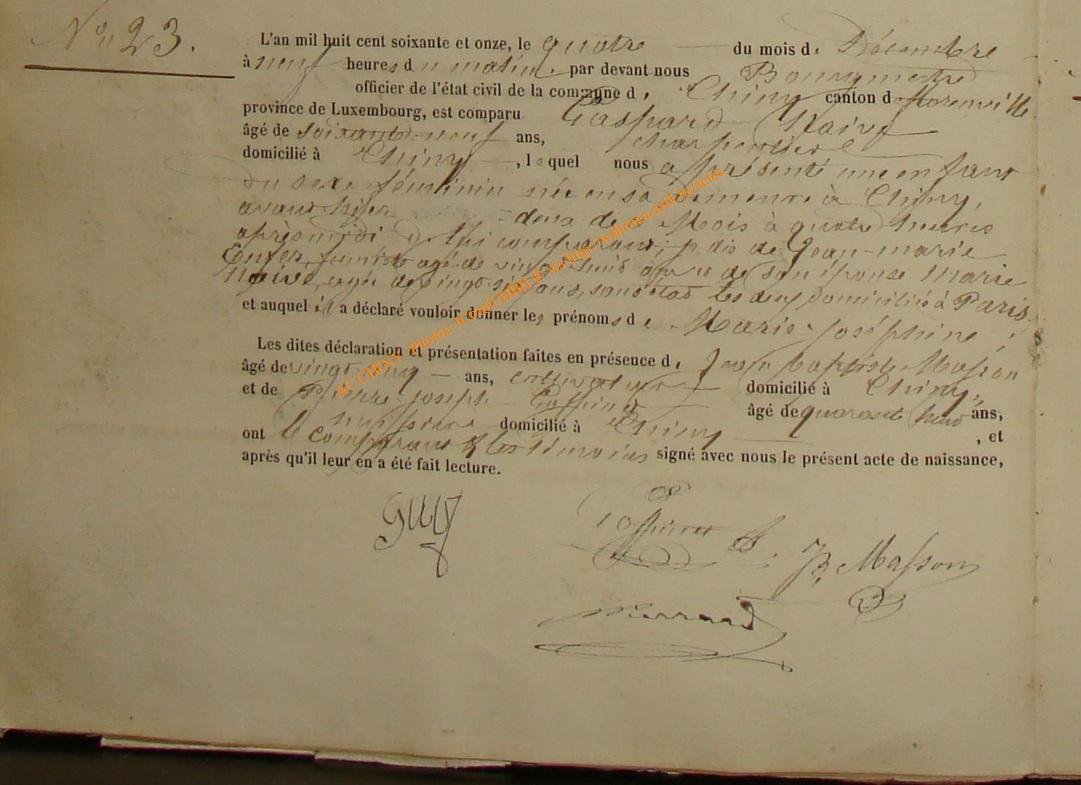 No 23.
L'an mil huit cent soixante et onze, le quatre du mois de Décembre
à neuf heures du matin, par devant nous Bourgmestre
officier de l'état civil de la commune de Chiny canton de Florenville
province de Luxembourg, est comparu Gaspard Naive
âgé de soixante-neuf ans, charpentier
domicilié à Chiny, lequel nous a présenté une enfant
du sexe féminin née en sa demeure à Chiny,
avant hier deux de Mois à quatre heures
après midi de lui comparant, de Jean-marie
âgé de vingt huit de son épouse Marie
Naive, âgée de vingt ans, sans état les deux domiciliés à Paris
et auquel il a déclaré vouloir donner les prénoms de Marie-Joséphine;
Les dites déclaration et présentation faites en présence de Jean baptiste Masson
âgé de vingt cinq ans, cultivateur domicilié à Chiny,
et de Pierre Joseph âgé de quarante huit ans,
domicilié à Chiny, et
ont le comparant & les témoins signé avec nous le présent acte de naissance,
après qu'il leur en a été fait lecture.
JB Masson